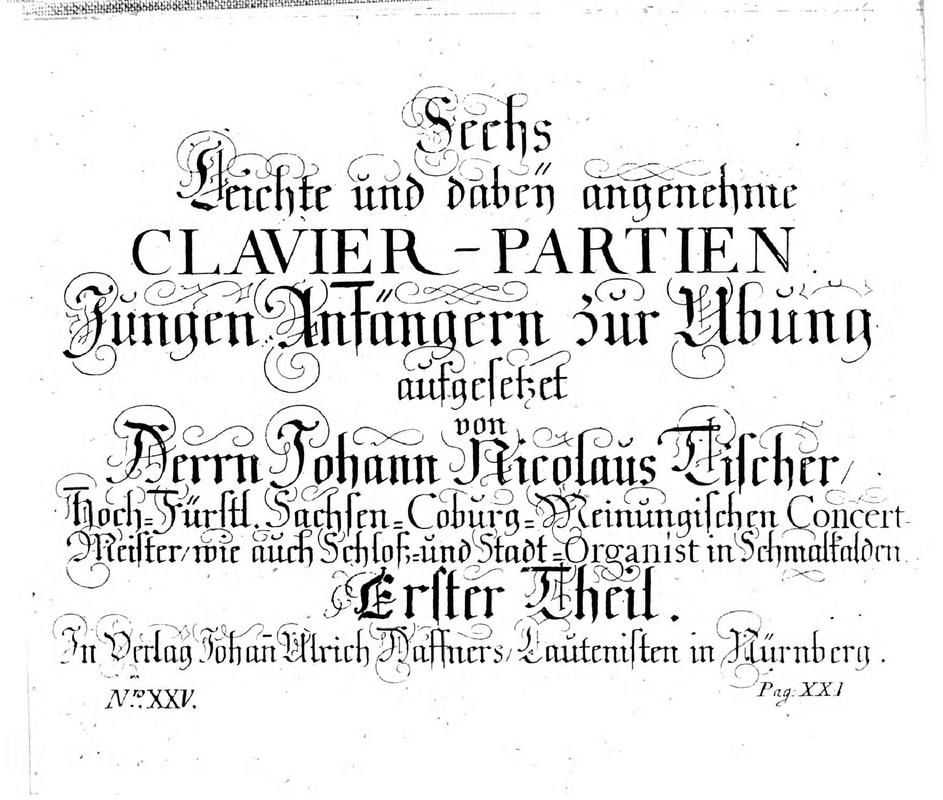 Sechs
Leichte und dabeÿ angenehme
CLAVIER-PARTIEN.
Jungen Anfängern zur Ubung
aufgesetzet
von
Herrn Johann Nicolaus Tischer/
Hoch=Fürstl. Sachsen=Coburg=Meinungischen Concert-
Meister/wie auch Schloß=und Stadt=Organist in Schmalkalden.
Erster Theil.
In Verlag Johan̄ Ulrich Haffners/Lautenisten in Nürnberg.
Nro. XXV.
Pag: XXI